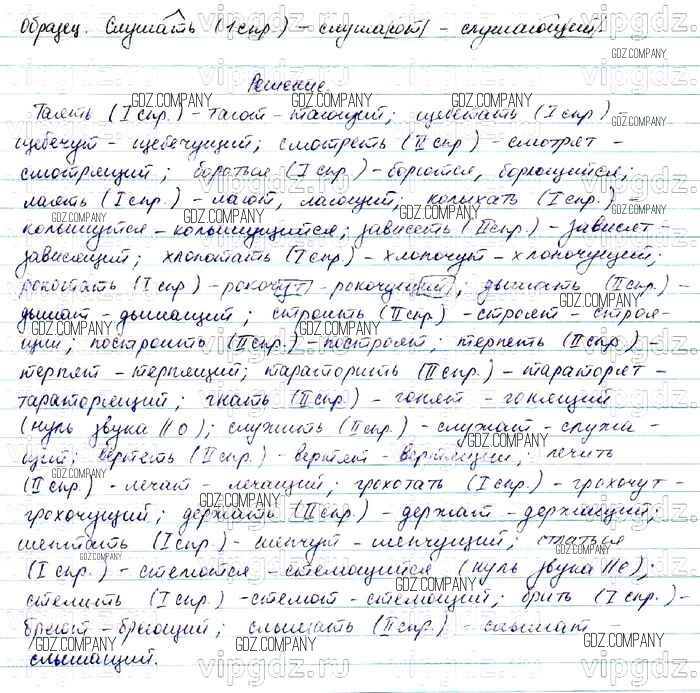 Образец. Слушать (I спр.) – слушают – слушающий.
Решение.
Таять (I спр.) – тают – тающий; щебетать (I спр) –
щебечут – щебечущий; смотреть (II спр.) – смотрят –
смотрящий; бороться (I спр.) – борются, борющийся;
лаять (I спр.) – лают, лающий; колыхать (I спр.) –
колышутся – колышущийся; зависеть (II спр.) – зависят –
зависящий; хлопотать (I спр.) – хлопочут – хлопочущий;
рокотать (I спр) – рокочут – рокочущий; дышать (II спр.) –
дышат – дышащий; строить (II спр.) – строят – строя-
щий; построить (II спр.) – построят; терпеть (II спр.) –
терпят – терпящий; тараторить (II спр.) – тараторят –
тараторящий; гнать (II спр.) – гонят – гонящий
(нуль звука // о); служить (II спр.) – служат – служа-
щий; вертеть (II спр.) – вертят – вертящий; лечить
(II спр.) – лечат – лечащий; грохотать (I спр.) – грохочут –
грохочущий; держать (II спр.) – держат – держащий;
шептать (I спр.) – шепчут – шепчущий; стлаться
(I спр.) – стелются – стелющийся (нуль звука // е);
стелить (I спр.) – стелют – стелющий; брить (I спр.) –
бреют – бреющий; слышать (II спр.) – слышат –
слышащий.
GDZ.COMPANY
vipgdz.ru